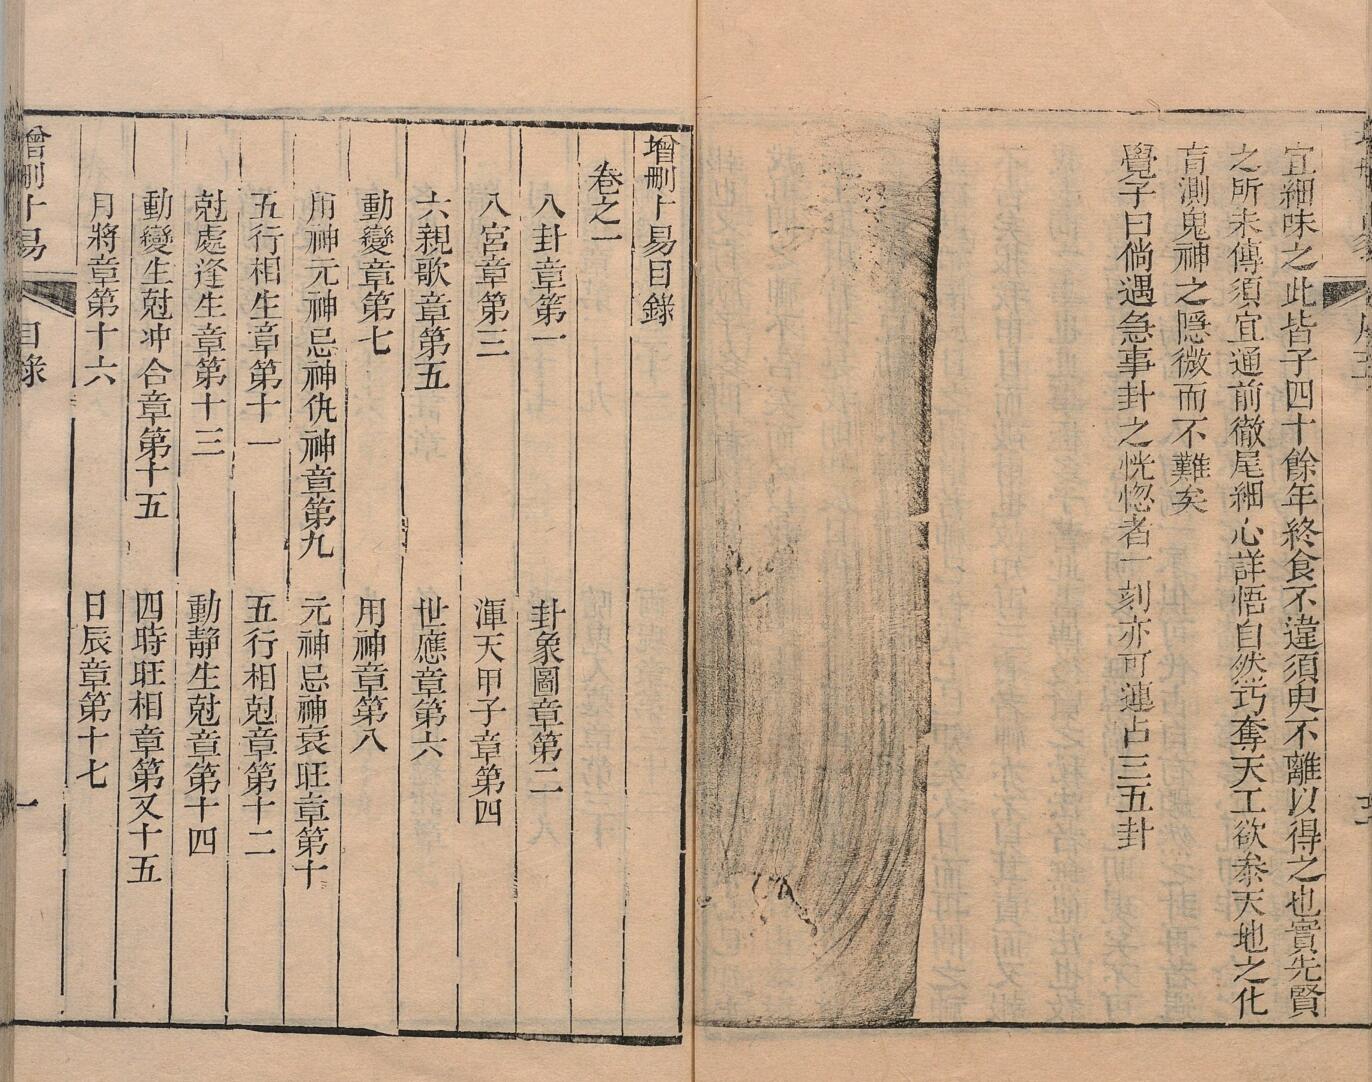 宜細味之此皆子四十餘年終食不違須臾不離以得之也實先賢
之所未傳須宜通前徹尾細心詳悟自然巧奪天工欲叅天地之化
育測鬼神之隱微而不難矣
覺子曰倘遇急事卦之恍惚者一刻亦可連占三五卦
增刪卜易目錄
卷之一
八卦章第一
卦象圖章第二
八宮章第三
渾天甲子章第四
六親歌章第五
世應章第六
動變章第七
用神章第八
用神元神忌神仇神章第九
元神忌神衰旺章第十
五行相生章第十一
五行相尅章第十二
尅處逢生章第十三
動靜生尅章第十四
動變生尅冲合章第十五
四時旺相章第又十五
月將章第十六
日辰章第十七
增刪卜易
目錄
一